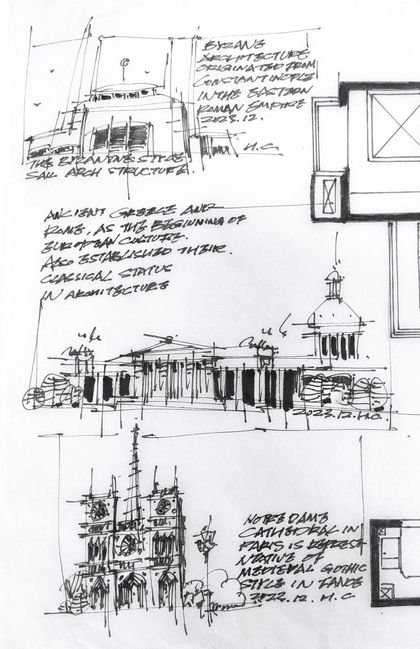 BYZANE
ARCHITECTURE
ORIGINATED FROM
CONSTANTINOPLE
IN THE EASTERN
ROMAN EMPIRE
2023.12.
H.C.
THE BYZANINE STYLE
SAIL ARCH STRUCTURE.
ANCIENT GREECE AND
ROME, AS THE BEGINNING OF
EUROPEAN CULTURE.
ALSO ESTABLISHED THEIR
CLASSICAL STATUS
IN ARCHITECTURE
2023.12.H.C.
NOTRE DAME
CATHEDRAL IN
PARIS IS REPRESE
NTATIVE OF
MEDIEVAL GOTHIC
STYLE IN FANCE
2022.12. H.C